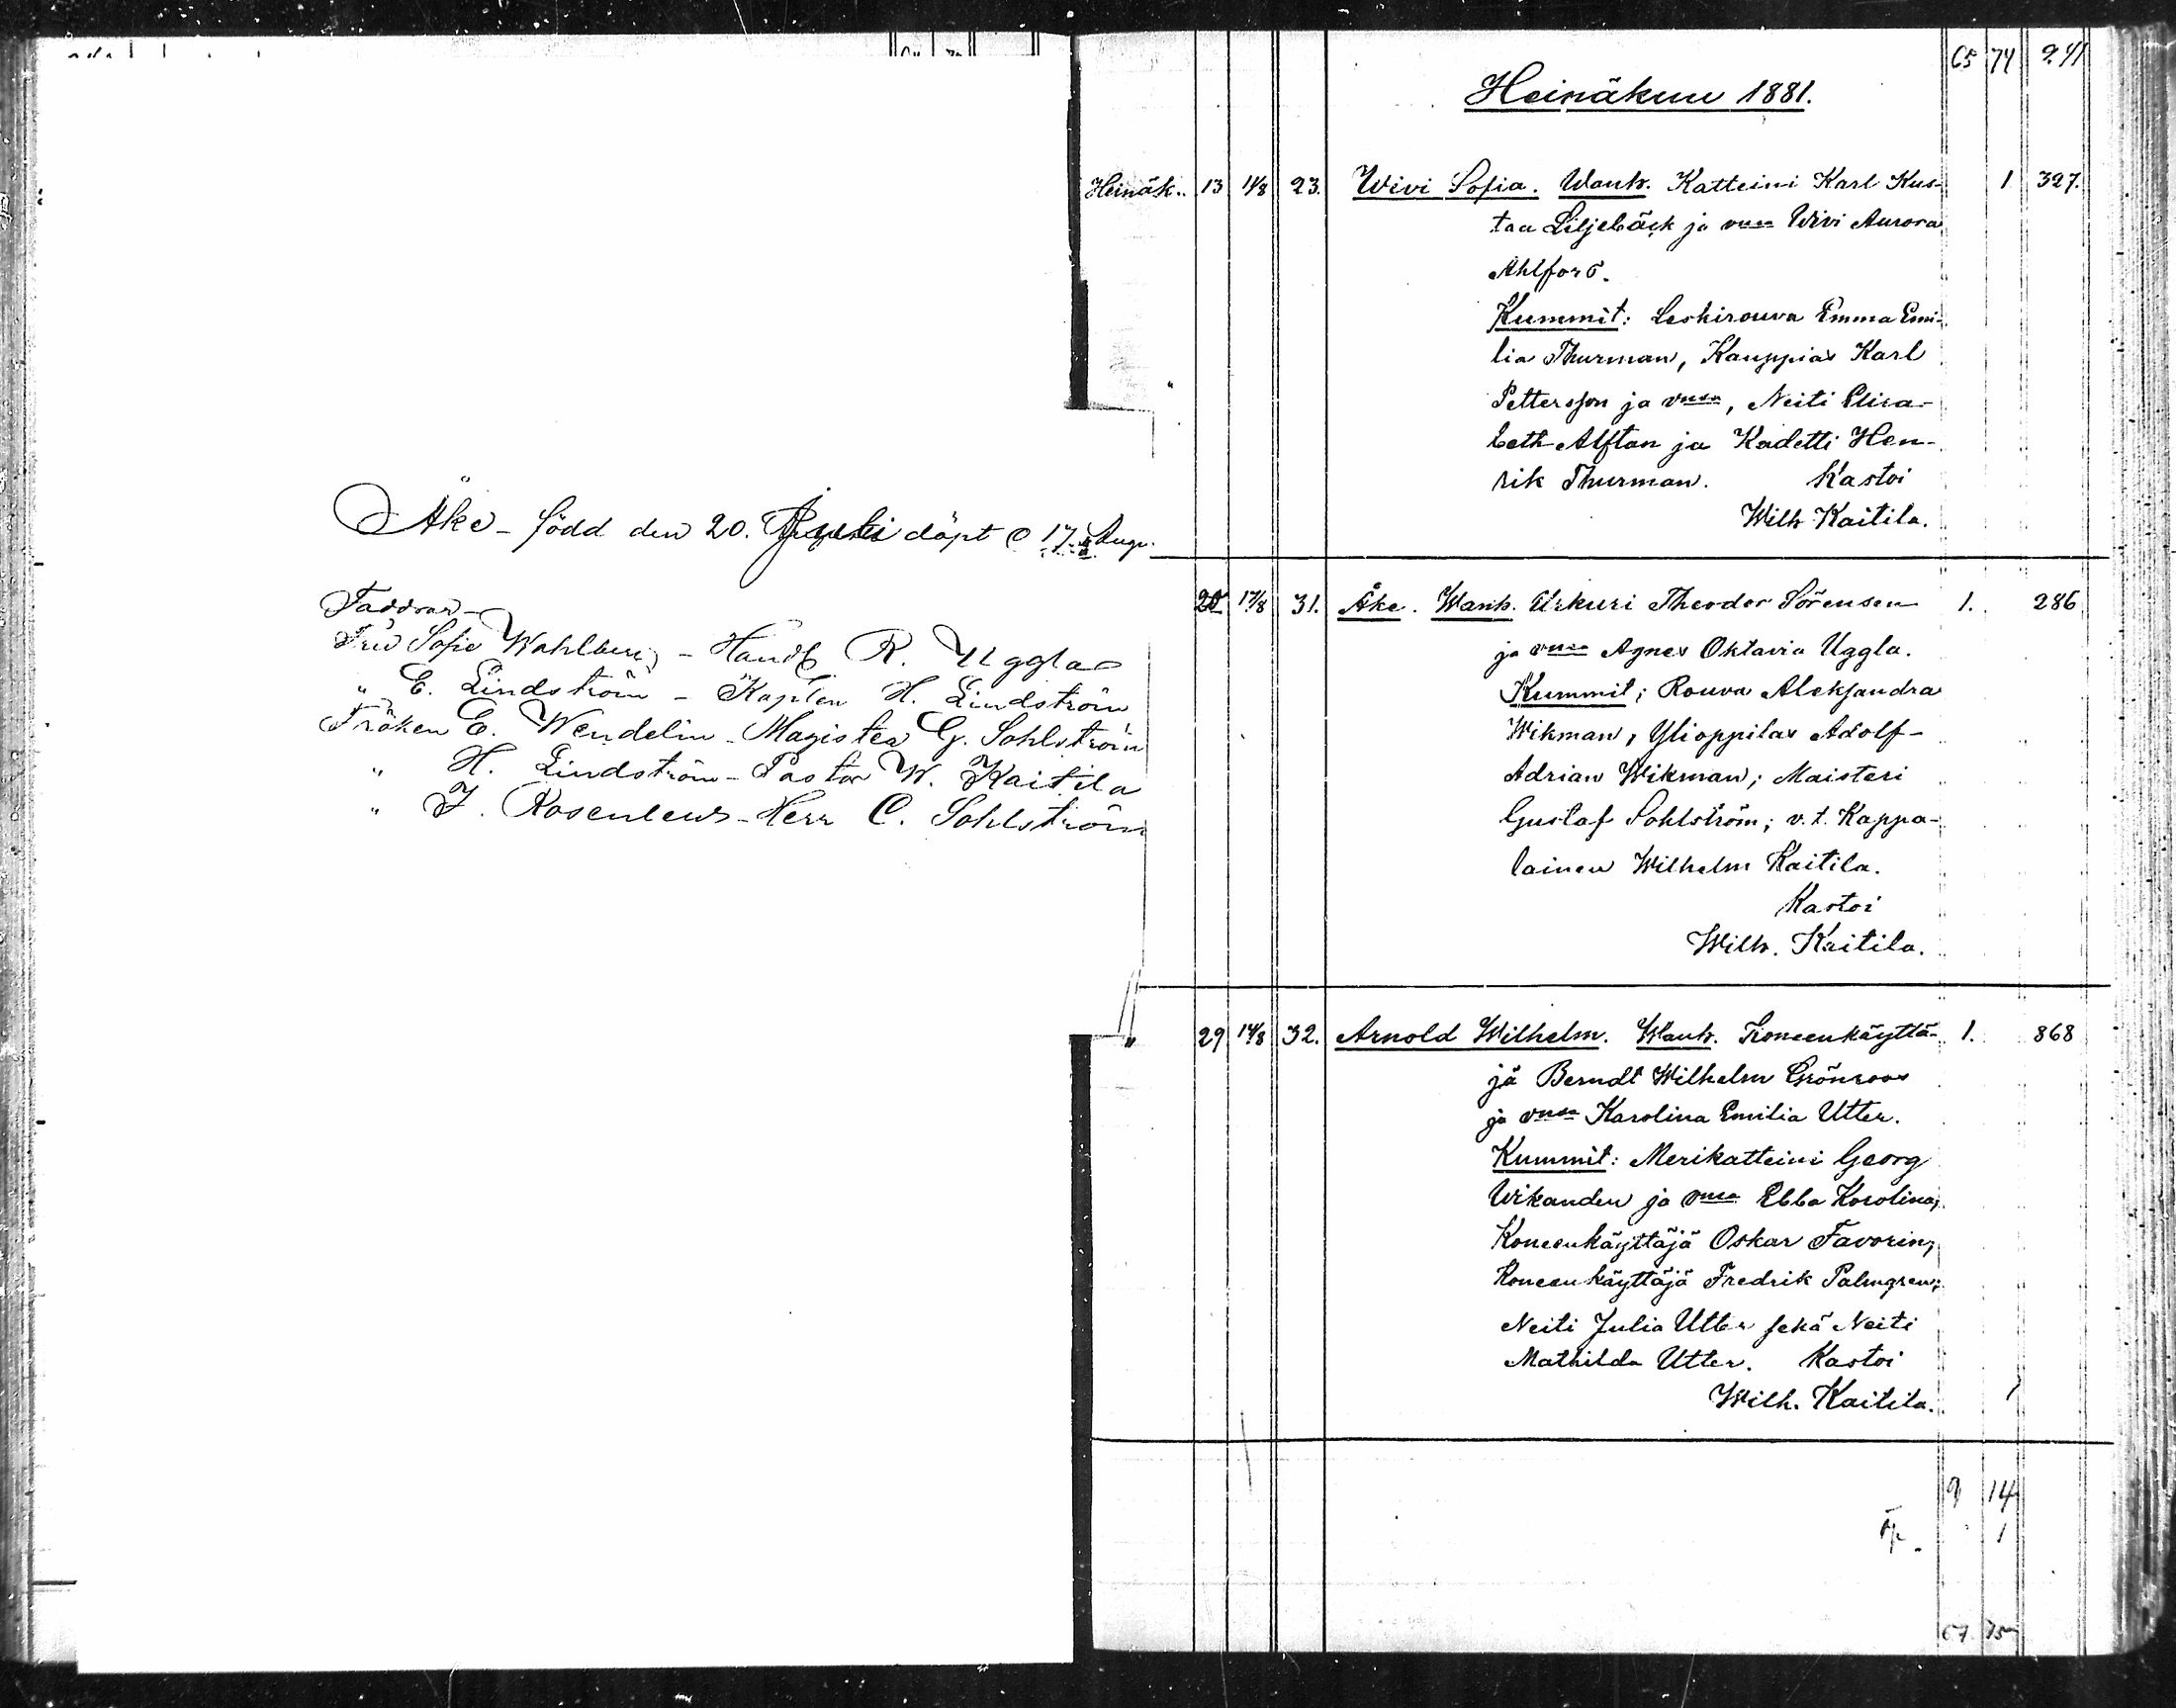 Åke - född den 20. Juli döpt d 17 Aug.
Faddrar -
Fru Sofie Wahlberg - Handl R. Uggla
" E. Lindström - Kapten H. Lindström
Fröken E. Wendelin - Magister G. Sohlström
" H. Lindström - Pastor W. Kaitila
" J. Rosenlew - Herr C. Sohlström
65 74 941
Heinäkuu 1881.
Heinäk. 13 14/8 23. Wivi Sofia. Wanh. Katteini Karl Kus- 1 327.
taa Liljebäck ja vmsa Wivi Aurora
Ahlfors.
Kummit: Leskirouva Emma Emi-
lia Thurman, Kauppias Karl
Pettersson ja vmsa, Neiti Elisa-
beth Alftan ja Kadetti Hen-
rik Thurman. Kastoi
Wilh Kaitila.
20 17/8 31. Åke. Wanh. Urkuri Theodor Sörensen 1. 286
ja vmsa Agnes Oktavia Uggla.
Kummit; Rouva Aleksandra
Wikman, Ylioppilas Adolf-
Adrian Wikman; Maisteri
Gustaf Sohlström; v.t. Kappa-
lainen Wilhelm Kaitila.
Kastoi
Wilh. Kaitila.
29 14/8 32. Arnold Wilhelm. Wanh. Koneenkäyttä- 1. 868
jä Berndt Wilhelm Grönroos
ja vmsa Karolina Emilia Utter.
Kummit: Merikatteini Georg
Wikander ja vmsa Ebba Karolina;
Koneenkäyttäjä Oskar Favorin;
Koneenkäyttäjä Fredrik Palmgren;
Neiti Julia Utter sekä Neiti
Mathilda Utter. Kastoi
Wilh. Kaitila.
9 14
1
67 75